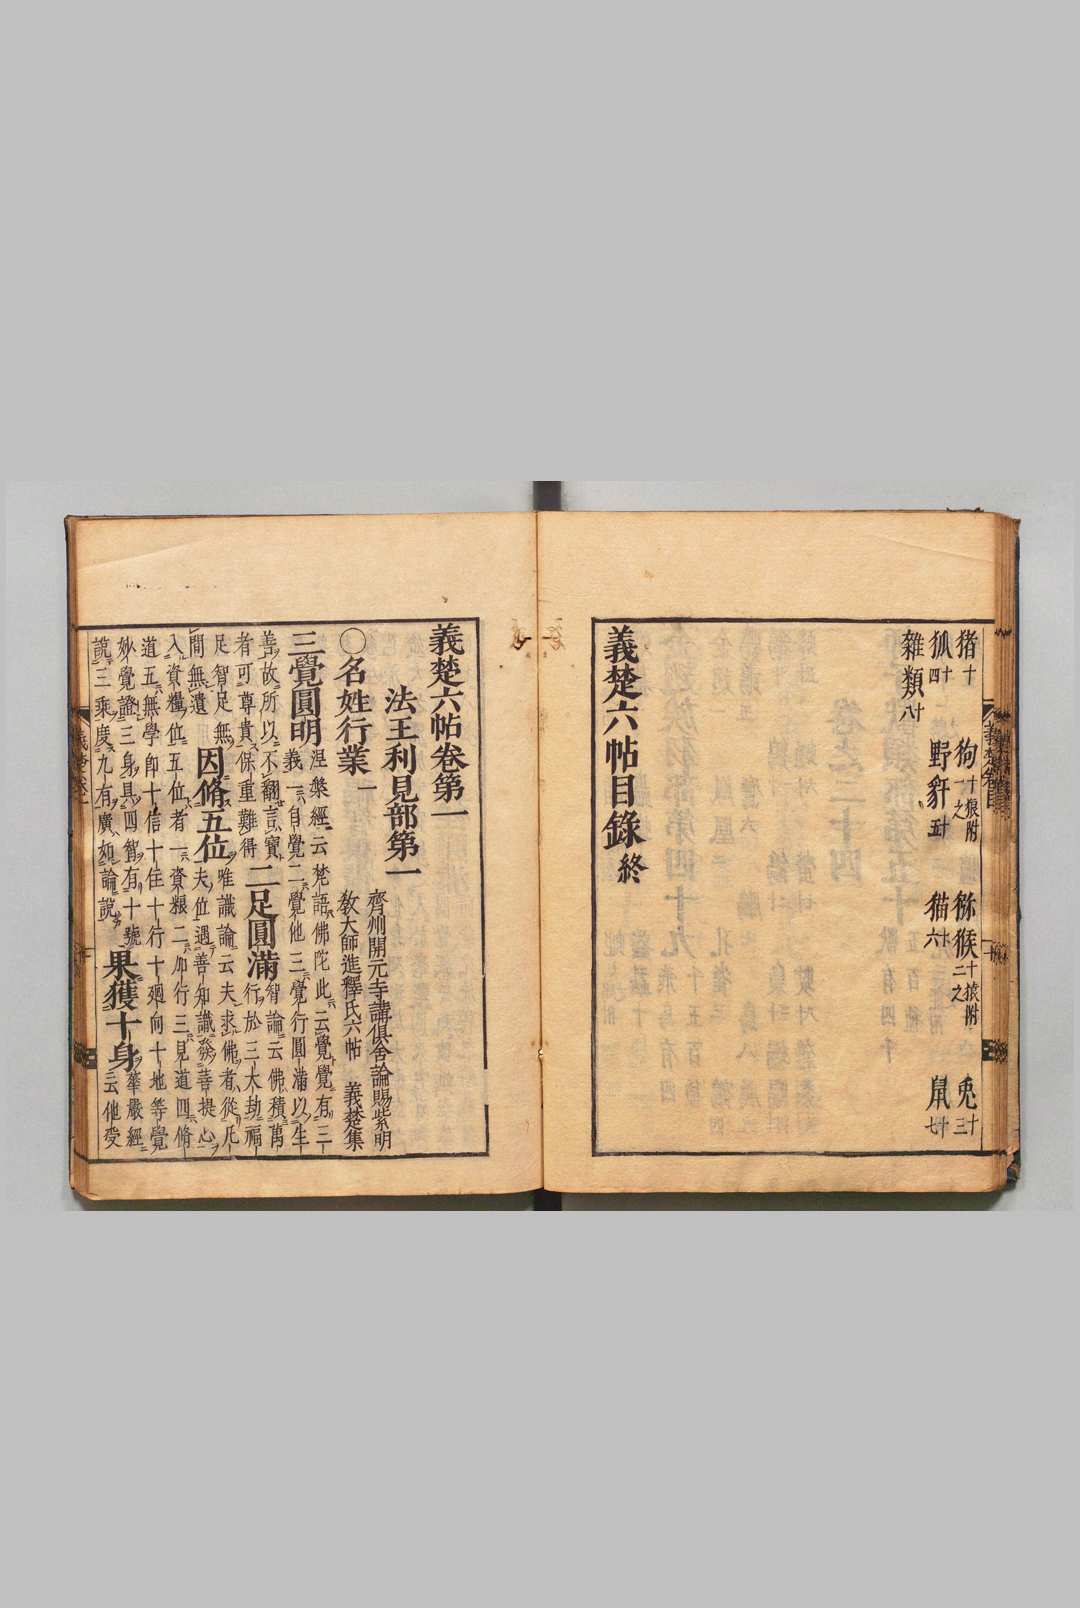 猪十 狗十一狼附之 獼猴十二猿附之 兎十三
狐十四 野豻十五 猫十六 鼠十七
雜類十八
義楚六帖目錄終
義楚目
義楚六帖卷第一
法王利見部第一
齊州開元寺講俱舍論賜紫明
教大師進釋氏六帖 義楚集
○名姓行業一
三覺圓明
涅槃經云梵語佛陀此云覺覺有三
義一自覺二覺他三覺行圓滿以生
善故所以不翻言寶
者可尊貴保重難得
二足圓滿
智論云佛積萬
行於三大劫福
足智足無
間無遺
因脩五位
唯識論云夫求佛者從凡
夫位遇善知識發菩提心
入資糧位五位者一資粮二加行三見道四脩
道五無學即十信十住十行十廻向十地等覺
妙覺證三身具四智有十號
說三乘度九有廣如論說
果獲十身
華嚴經
云他受
義楚卷一